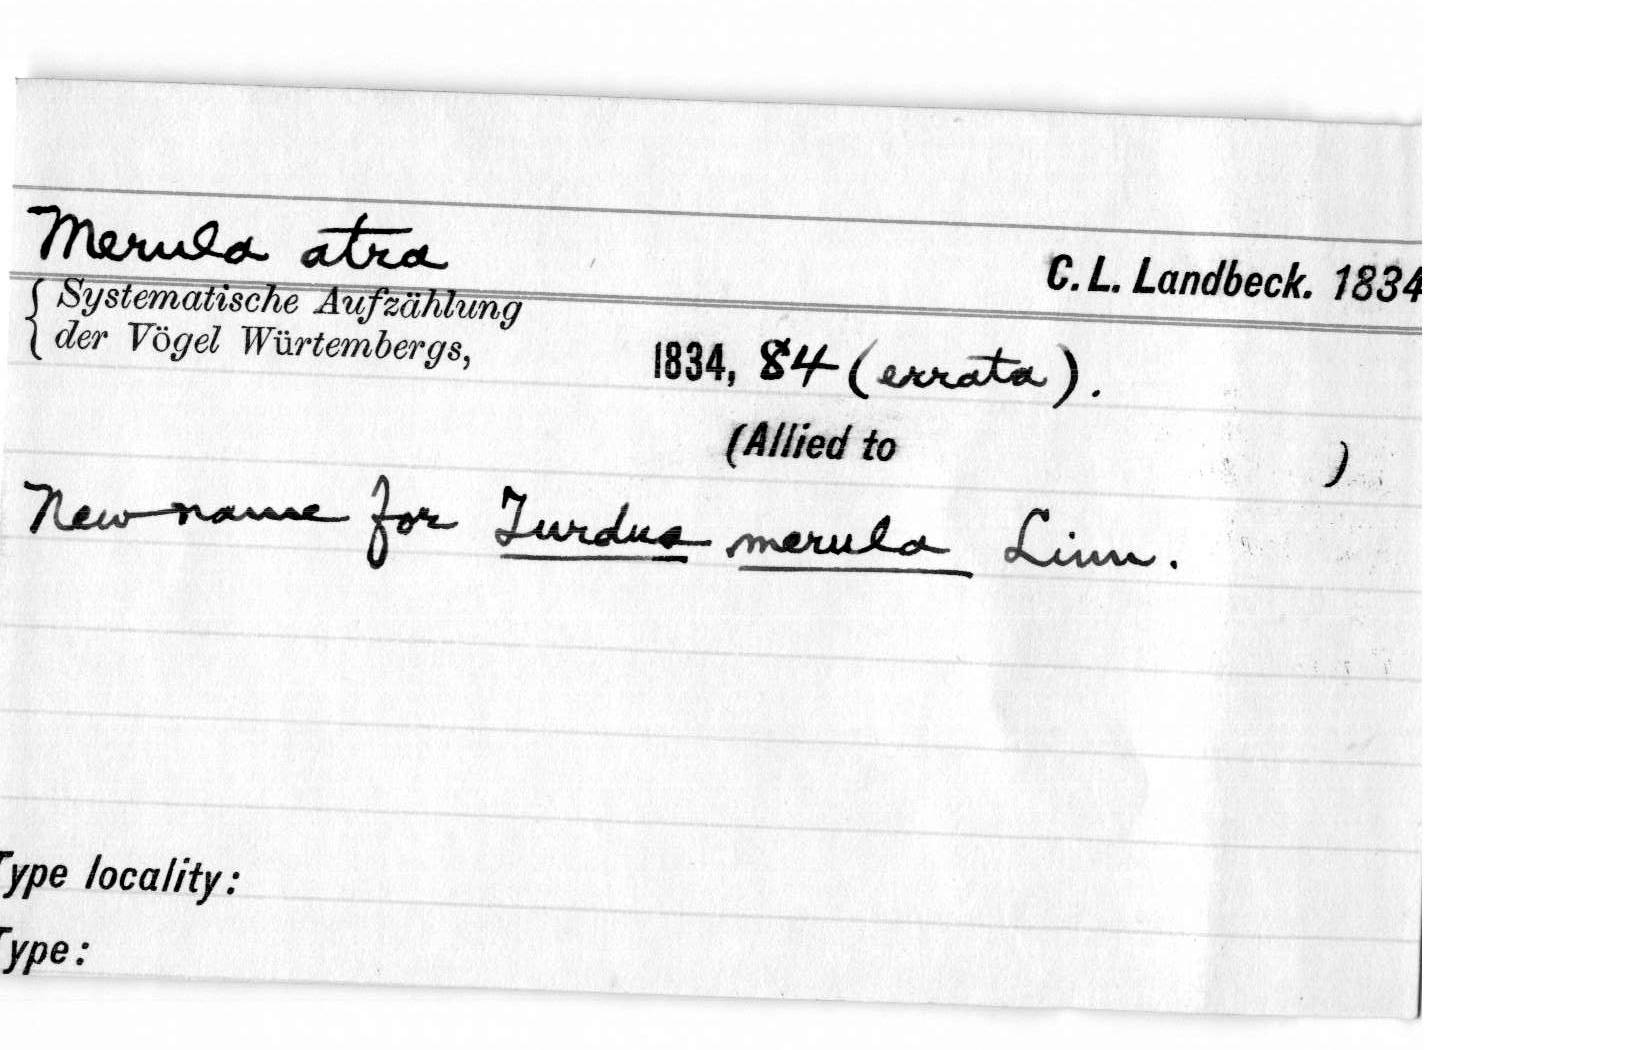 Merula atra
C. L. Landbeck. 1834
Systematische Aufzählung
der Vögel Würtembergs,
1834, 84 (errata).
(Allied to )
New name for Turdus merula Linn.
Type locality:
Type: